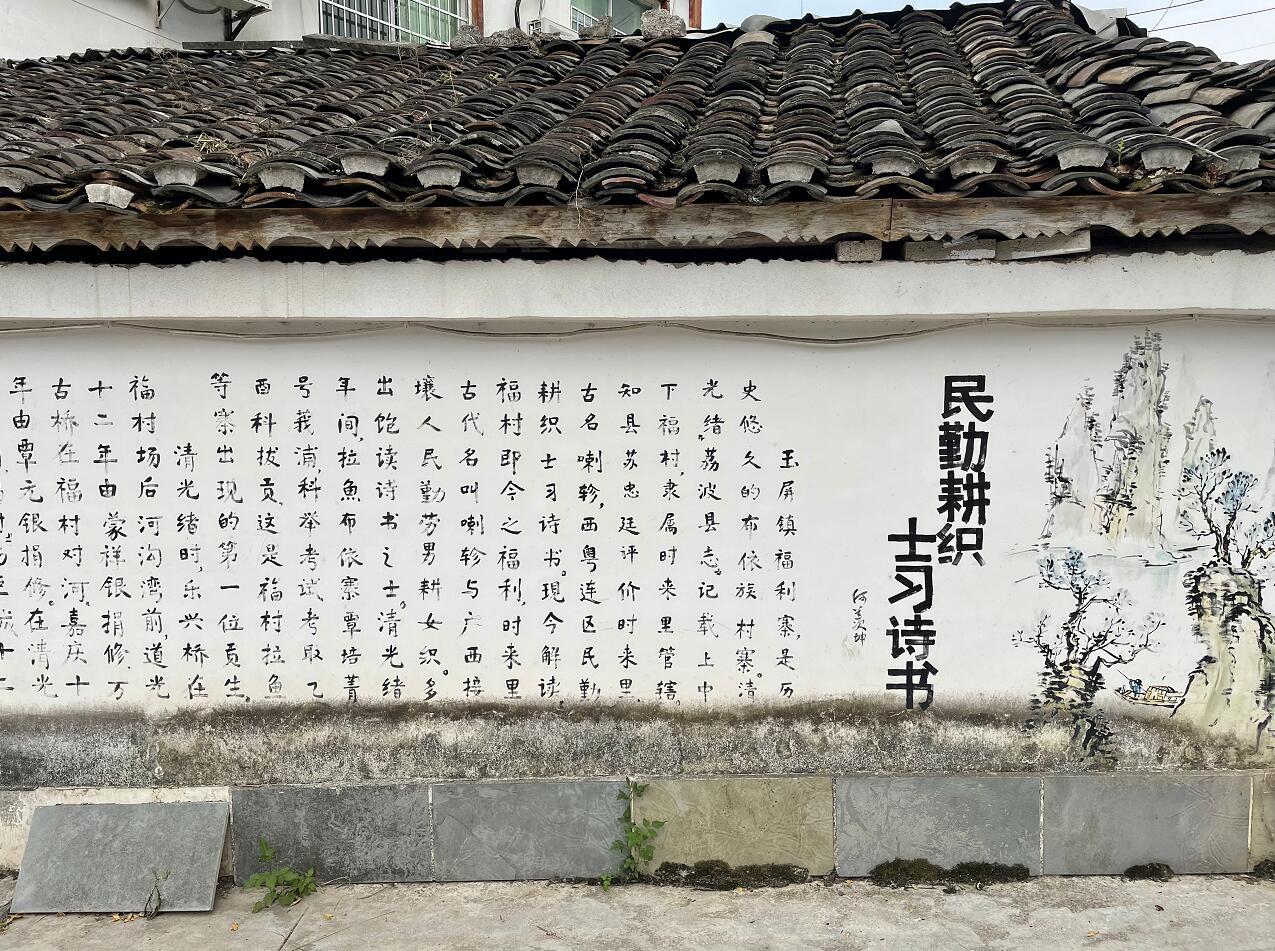 民勤耕织
士习诗书
何美坤
玉屏镇福利寨,是历
史悠久的布依族村寨。清
光绪“荔波县志”记载上中
下福村,隶属时来里管辖。
知县苏忠廷评价时来里,
古名喇轸,西粤连区民勤
耕织士习诗书。现今解读,
福村即今之福利,时来里
古代名叫喇轸与广西接
壤人民勤劳男耕女织。多
出饱读诗书之士。清光绪
年间,拉魚布依寨覃培菁
号莪浦,科举考试考取乙
酉科拔贡,这是福村拉鱼
等寨出现的第一位贡生。
清光绪时,乐兴桥在
福村场后河沟湾前,道光
十二年由蒙祥银捐修,万
古桥在福村对河,嘉庆十
年由覃元银捐修。在清光